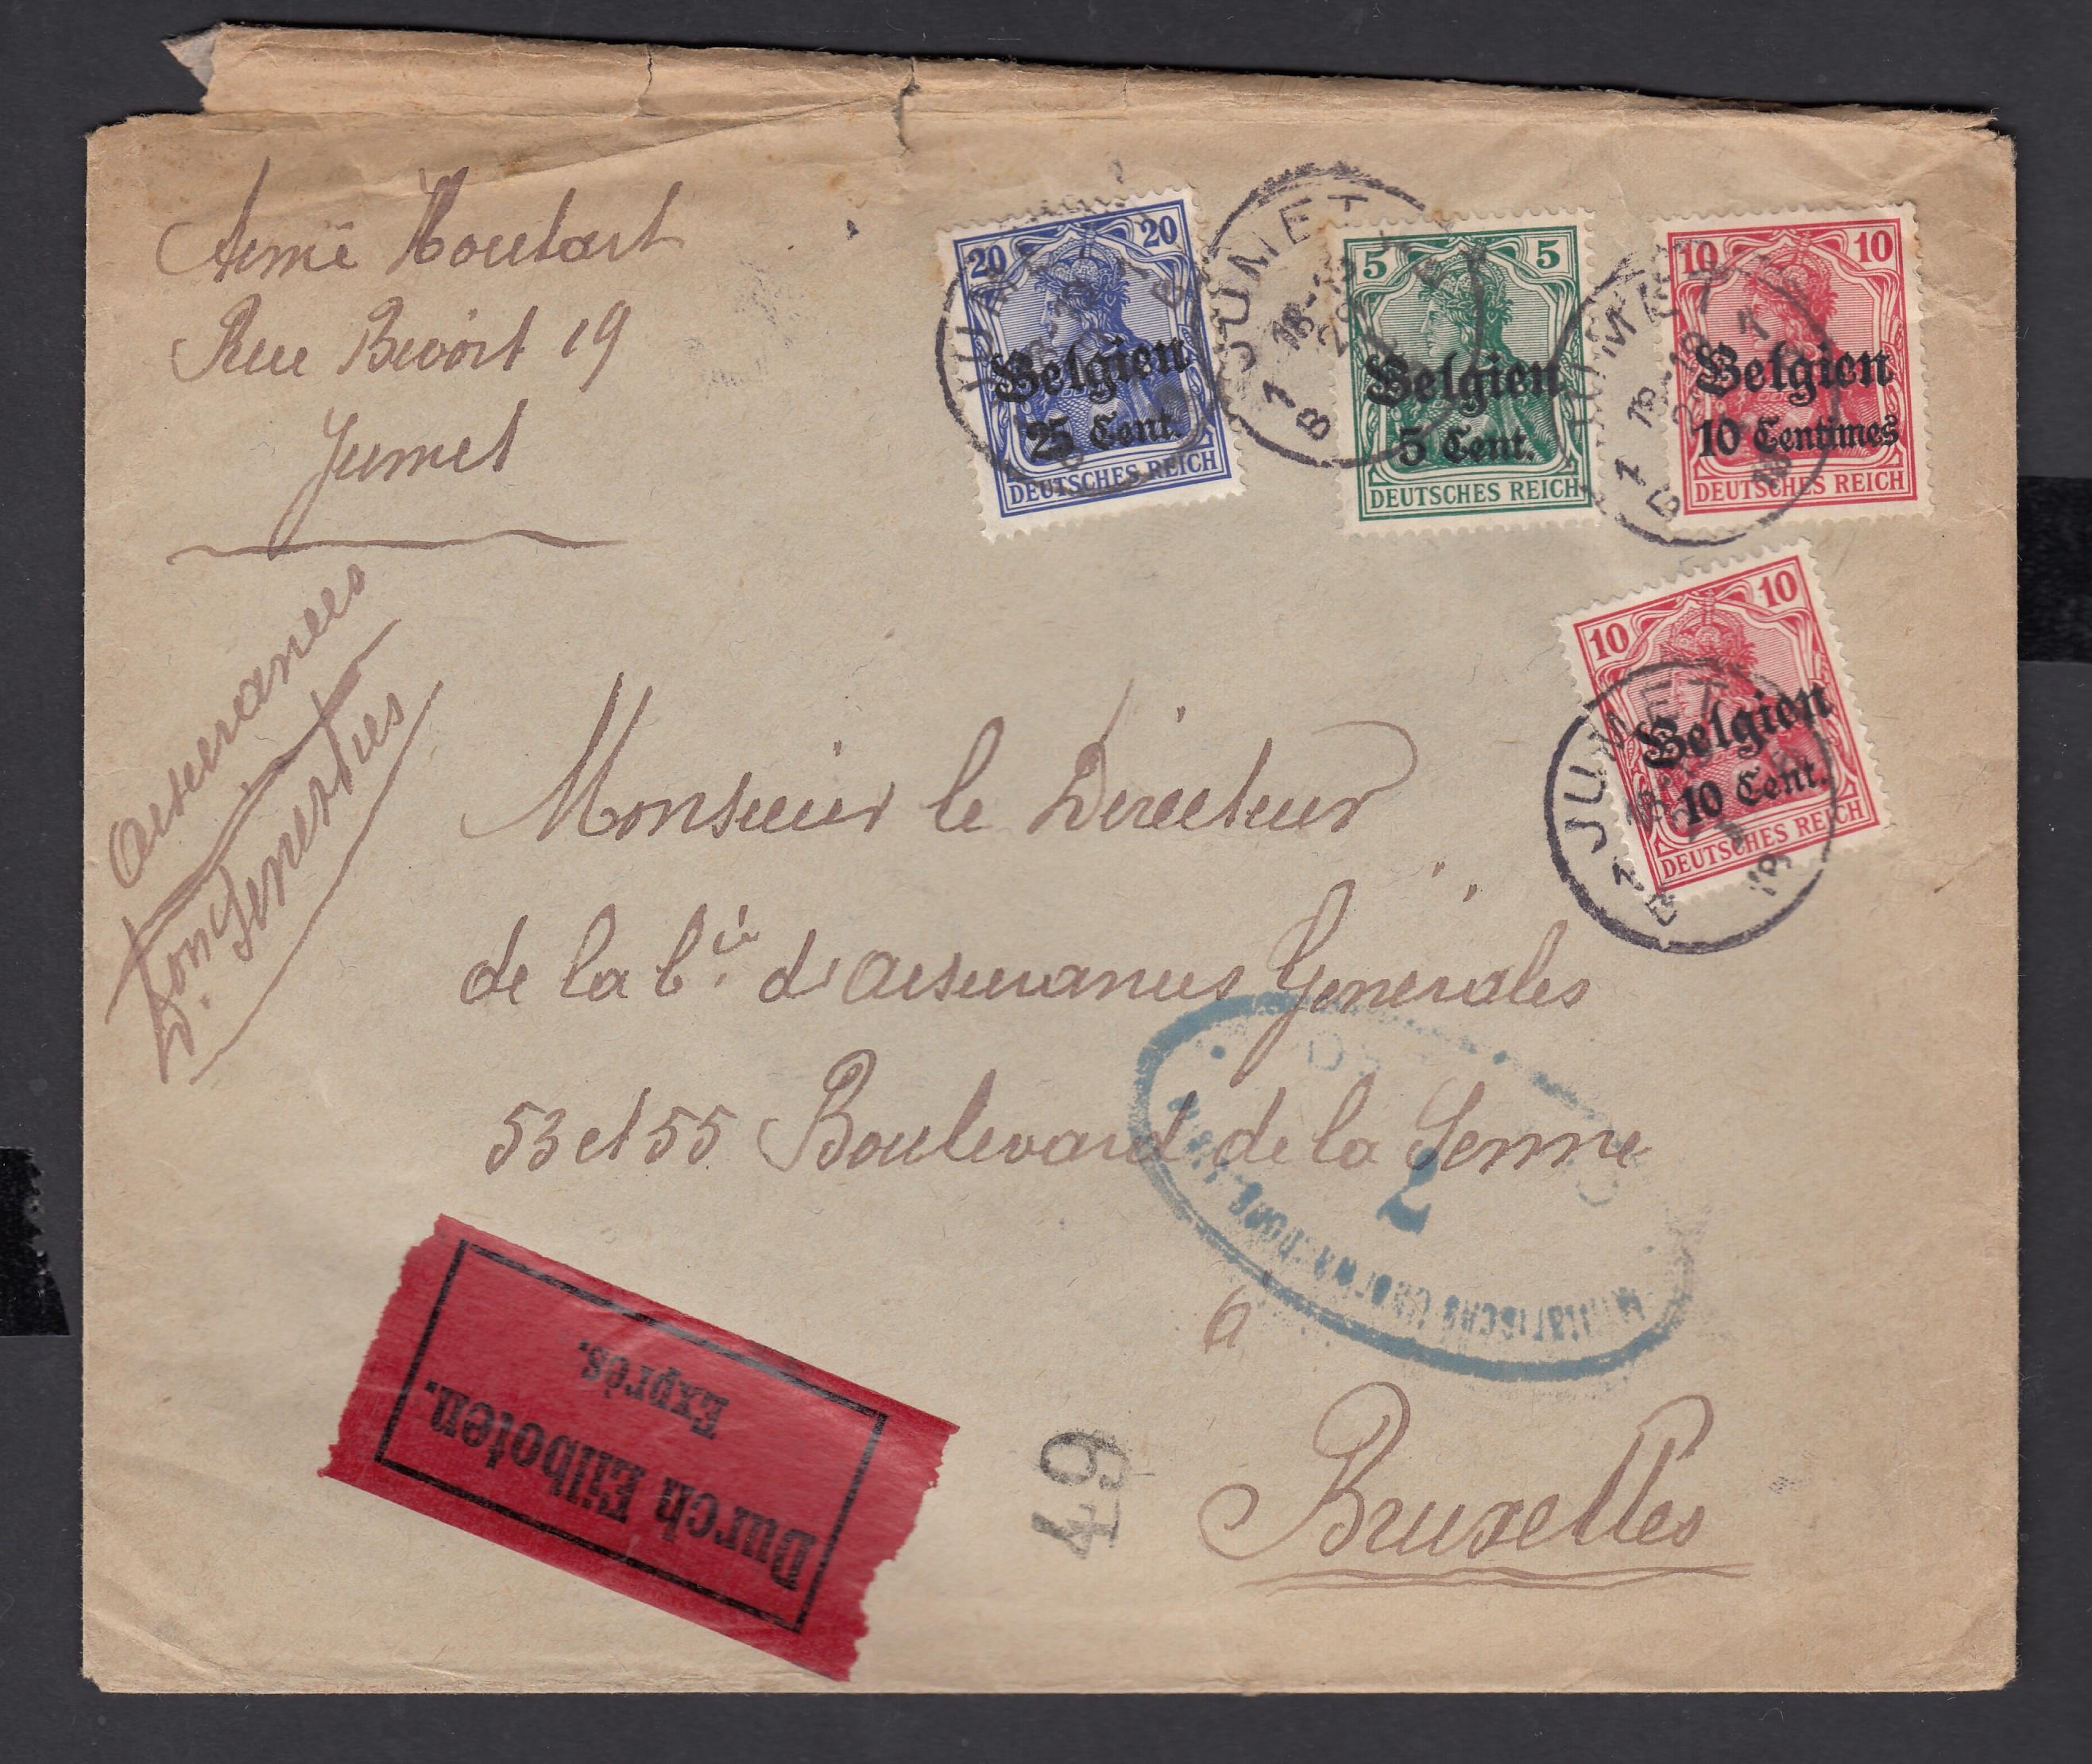 Aimé Houtart
Rue Bivort 19
Jumet
20 20
Belgien
25 Cent.
DEUTSCHES REICH
JUMET
5 5
Belgien
5 Cent.
DEUTSCHES REICH
JUMET
10 10
Belgien
10 Centimes
DEUTSCHES REICH
JUMET
10 10
Belgien
10 Cent.
DEUTSCHES REICH
JUMET
Monsieur le Directeur
de la Cie d'assurances Générales
53 et 55 Boulevard de la Senne
2
à
Bruxelles
49
Durch Eilboten.
Exprès.